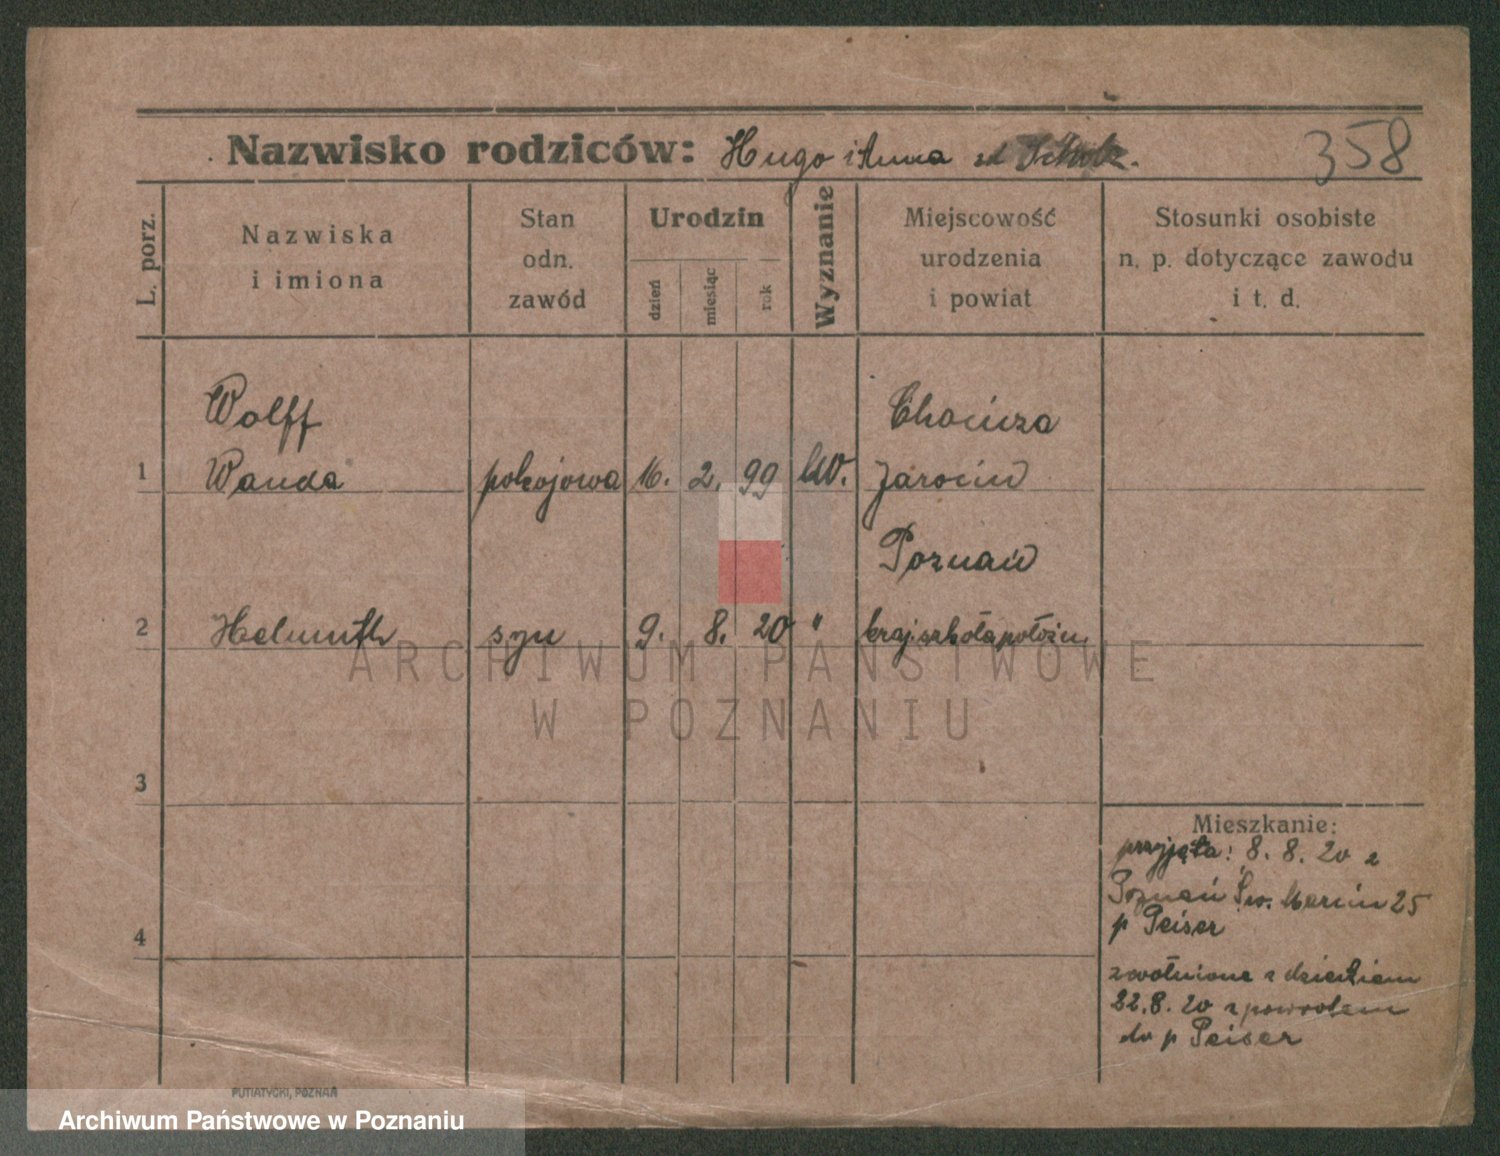 Nazwisko rodziców: Hugo i Anna
358
L. porz.
Nazwiska
i imiona
Stan
odn.
zawód
Urodzin
dzień
miesiąc
rok
Wyznanie
Miejscowość
urodzenia
i powiat
Stosunki osobiste
n. p. dotyczące zawodu
i t. d.
Wolff
Chocicza
1 Wanda pokojowa 16. 2. 99 Jarocin
Poznań
2 Helmuth syn 9. 8. 20 " kraj. szkoła położn.
ARCHIWUM PAŃSTWOWE
W POZNANIU
3
4
Mieszkanie:
przyjęta: 8. 8. 20 z
Poznań Św. Marcin 25
p Peiser
zwolniona z dzieckiem
22. 8. 20 z powrotem
do p Peiser
PUTIATYCKI, POZNAŃ
Archiwum Państwowe w Poznaniu